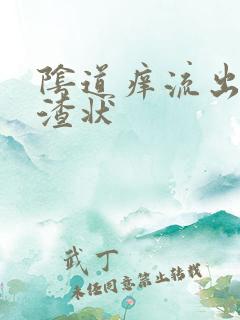 陰道痒流出
渣状
武丁
未经同意禁止转载